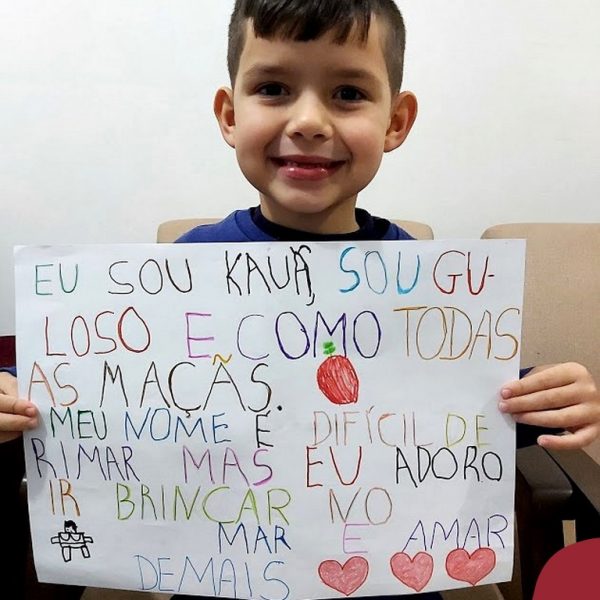 EU SOU KAUÃ, SOU GU-
LOSO E COMO TODAS
AS MAÇÃS.
MEU NOME É DIFÍCIL DE
RIMAR MAS EU ADORO
IR BRINCAR NO
MAR E AMAR
DEMAIS